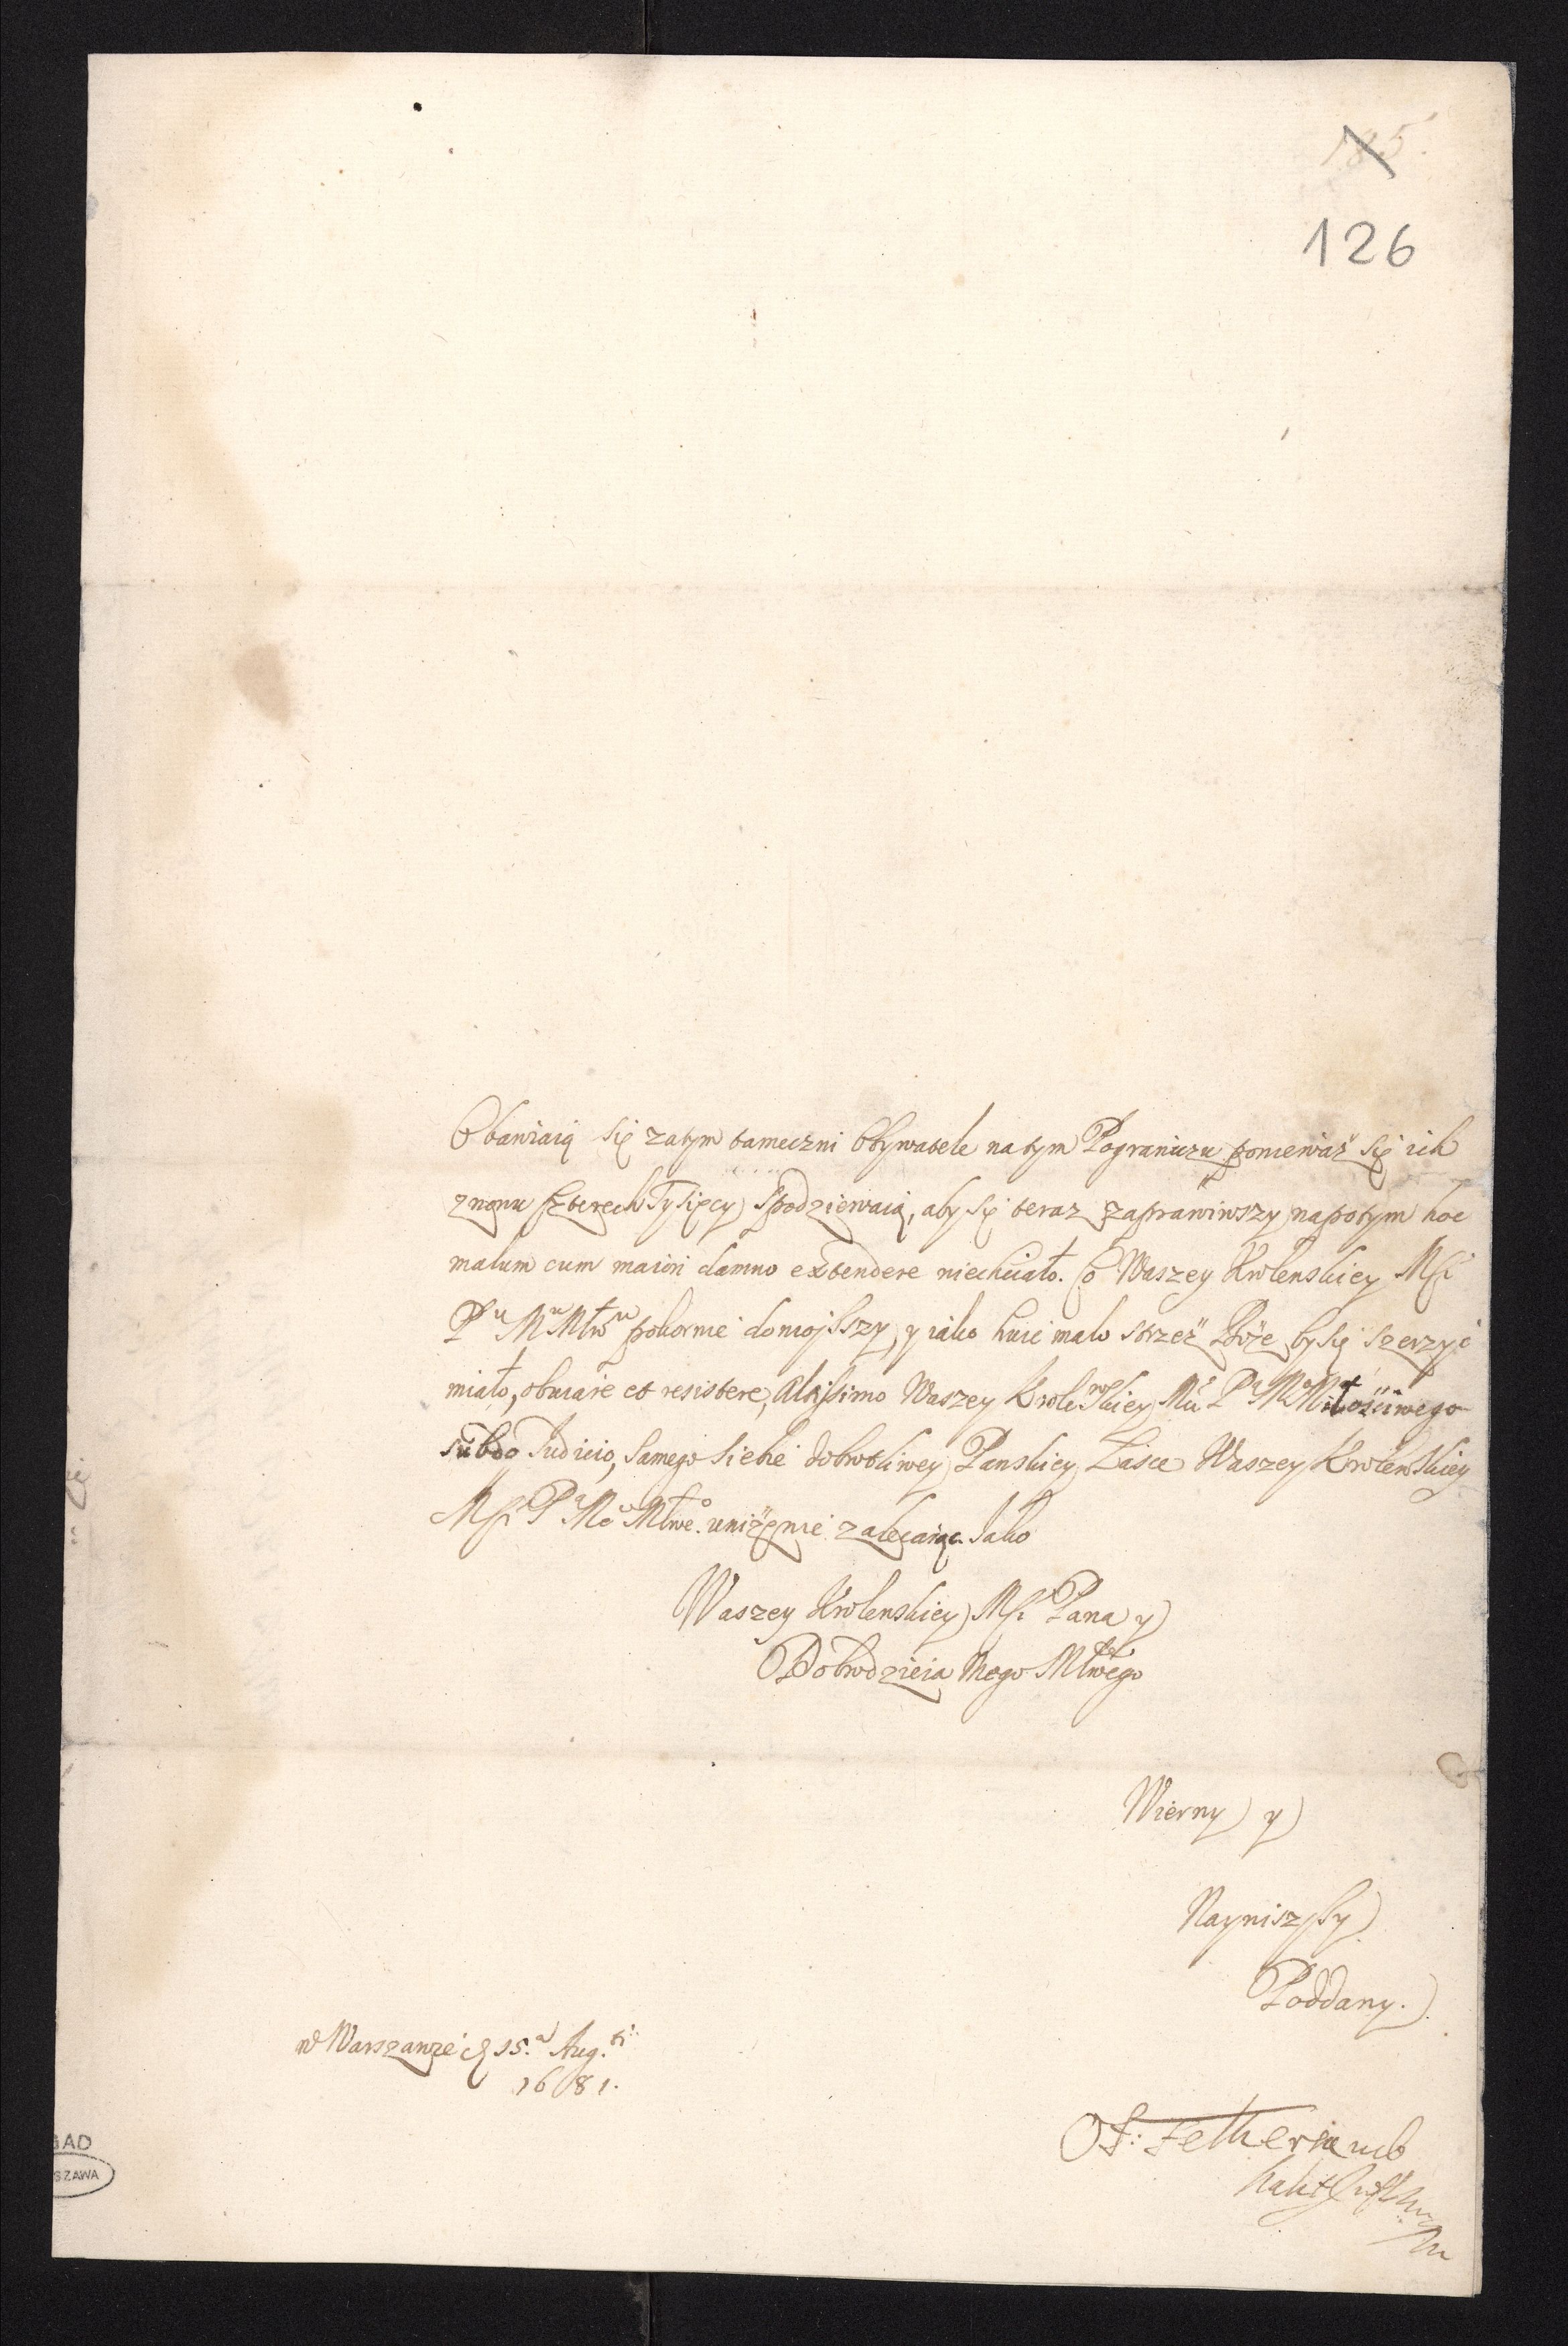 185.
126
Obawiaią się zatym tameczni Obywatele na tym Pograniczu ponieważ się ich
znowu czterech Tysięcy spodziewaią, aby się teraz zaprawiwszy napotym hoc
malum cum maiori damno extendere niechciało. Co Waszey Krolewskiey Mśći
Pu Mu Młwu pokornie doniosszy, y iako huic malo strzeż Boże by się szerzyć
miało, obuiare et resistere, Altissimo Waszey Krolewskiey Mći Pa Me Miłościwego
subdo Iudicio, Samego siebie dobrotliwey Panskiey Łasce Waszey Krolewskiey
Mśći Pa Me Młwego uniżenie zalecaiąc. Iako
Waszey Krolewskiey Mśći Pana y
Dobrodzieia Mego Młwego
Wierny y
Nayniszszy
Poddany.
w Warszawie d 15.a Aug.ti
1681.
GAD
SZAWA